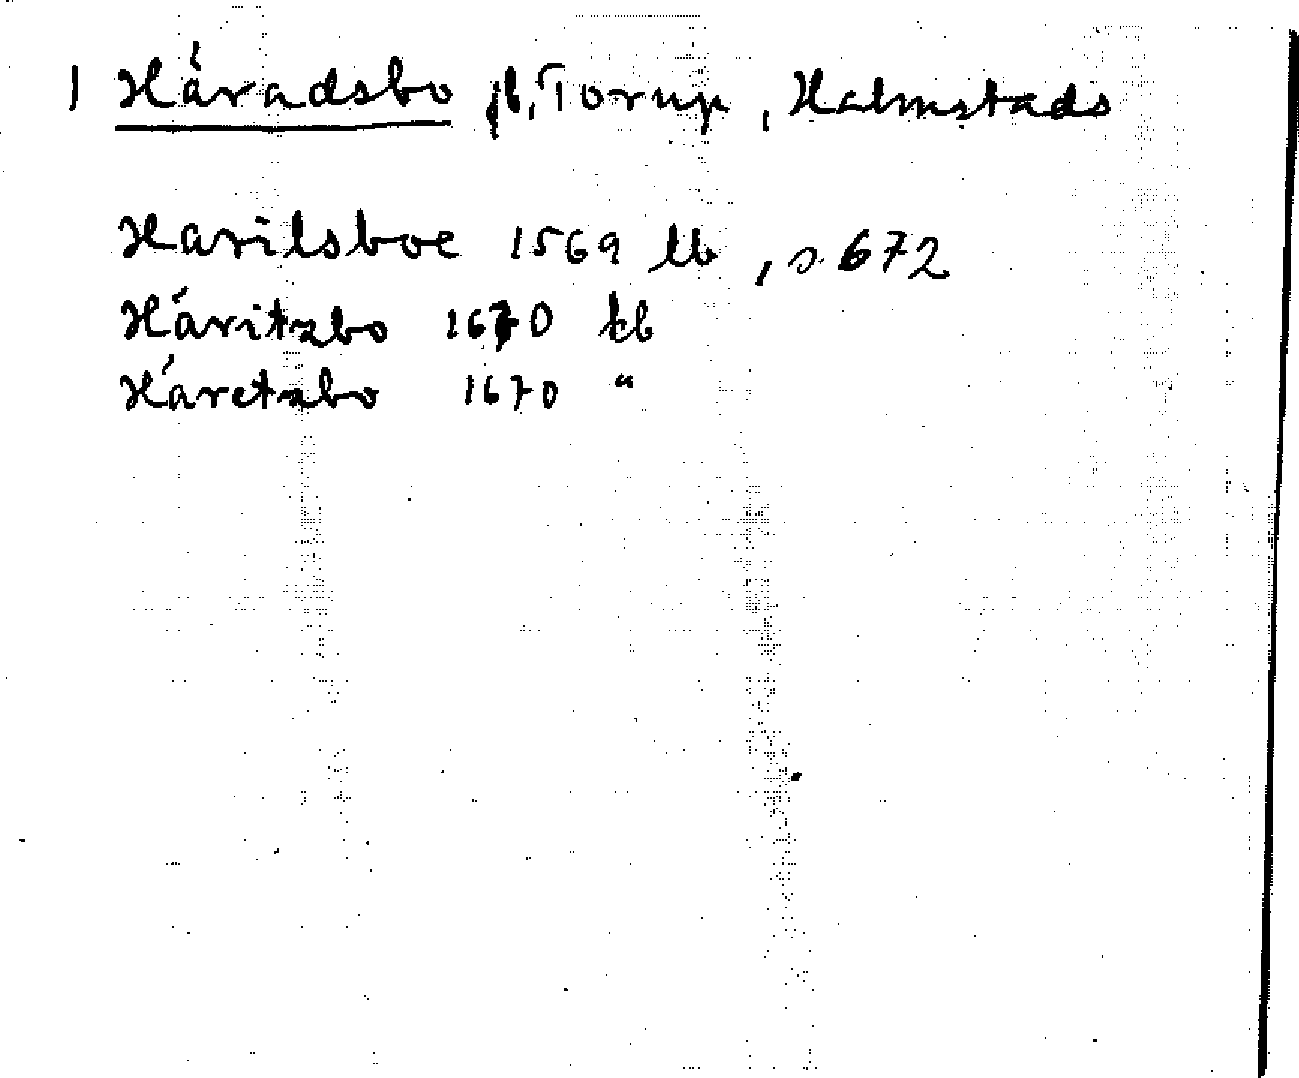 1 Häradsbo fb, Torup, Halmstads
Harilsboe 1569 lb, s 672
Häritzbo 1670 kb
Häretzbo 1670 "